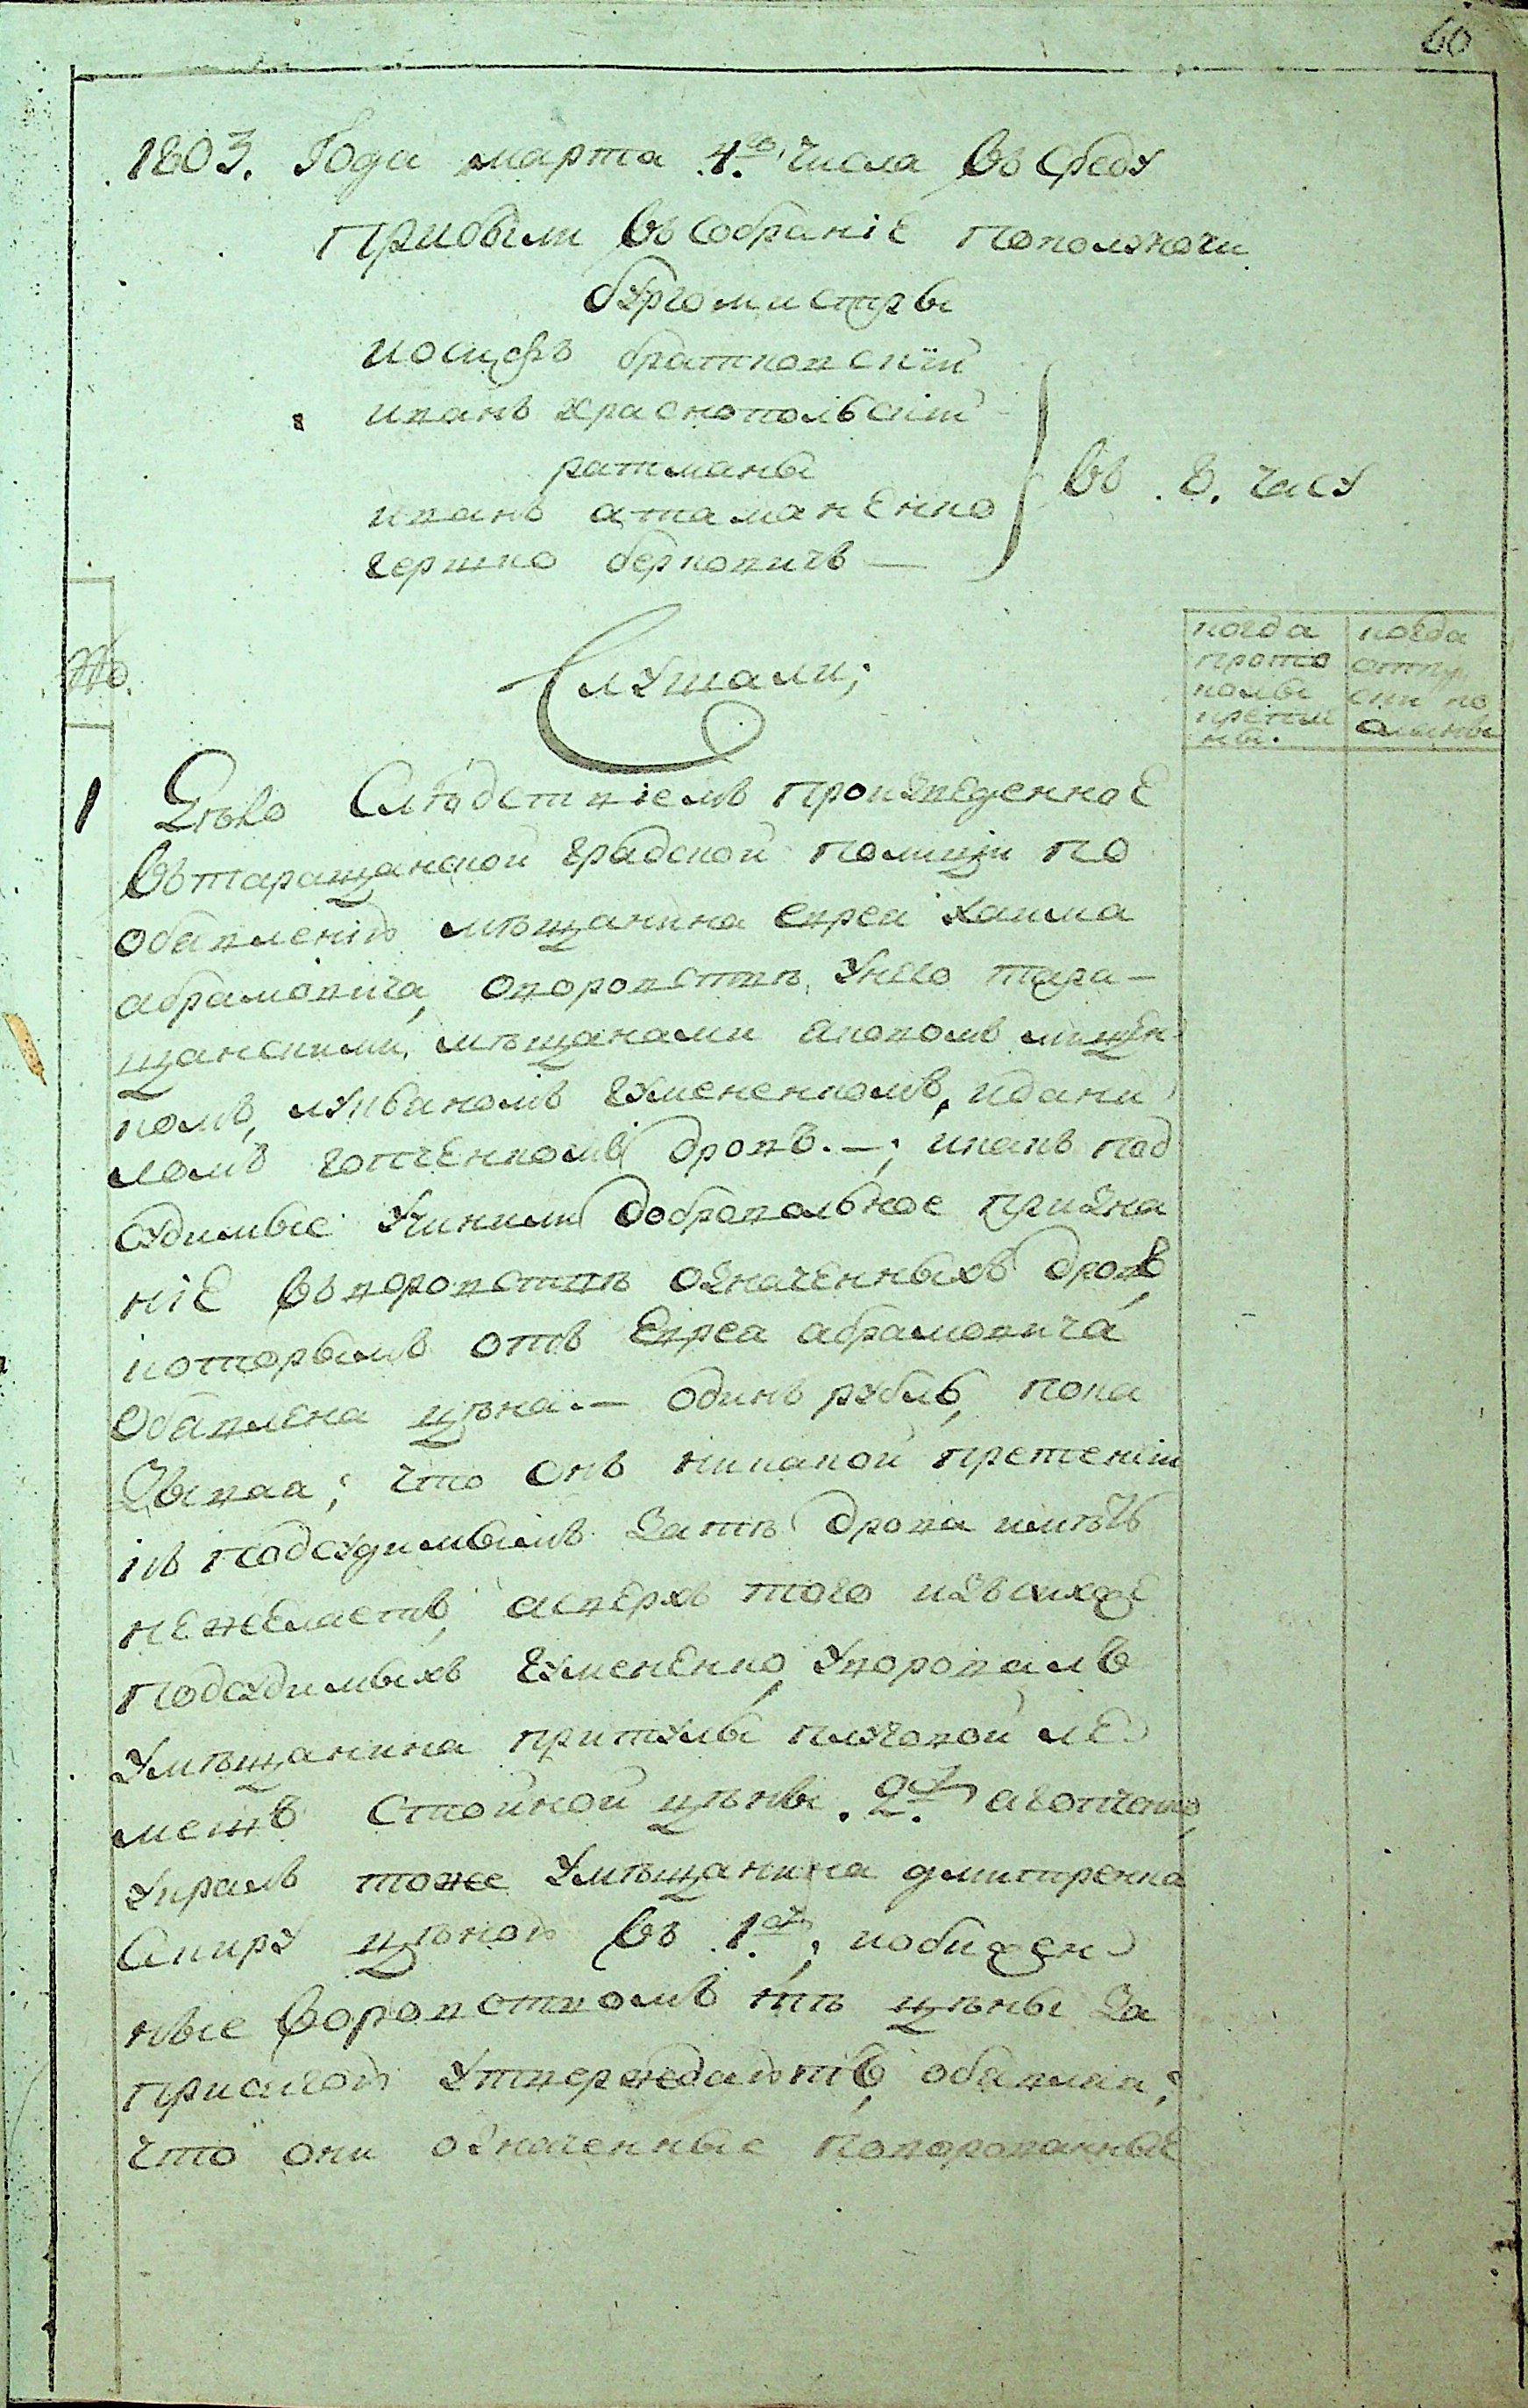 60
1803. Года марта 4.го числа въ среду
Прибыли въ собраніе пополуночи
бургомистры
иосифъ братковскій
иванъ краснопольскій
ратманы
иванъ атаманенко
гершко берковичъ —
въ .8. часу
№
Слушали;
когда прото колы крепле ны.
когда отпу ски по
1 Дѣло Слѣдствіемъ произведенное
въ таращанской градской полиціи по
обявленію мѣщанина еврея хаима
абрамовича, оворовствѣ унего тара–
щанскими, мѣщанами яковомъ
комъ, лукьяномъ гумененкомъ, идани
ломъ готченкомъ дровъ. –; икакъ под
судимые учинили добровольное призна
ніе въ воровствѣ означенныхъ дровъ,
которымъ отъ еврея абрамовича
обявлена цѣна. – одинъ рубль, пока
зывая; что онъ никакой претеніи
къ подсудимымъ затѣ дрова имѣть
нежелаетъ, асверхъ того изъ
подсудимыхъ гуменѣнко, уворовалъ
умѣщанина притулы плуговой ле
мешъ стойной цѣны .2.р
укралъ тоже умѣщанина дмитренка
Сикиру цѣною въ .1.р; иобижен
ные воровствомъ тѣ цѣны за
присягою утверждаютъ, обявляя;
что они означенные поворованные